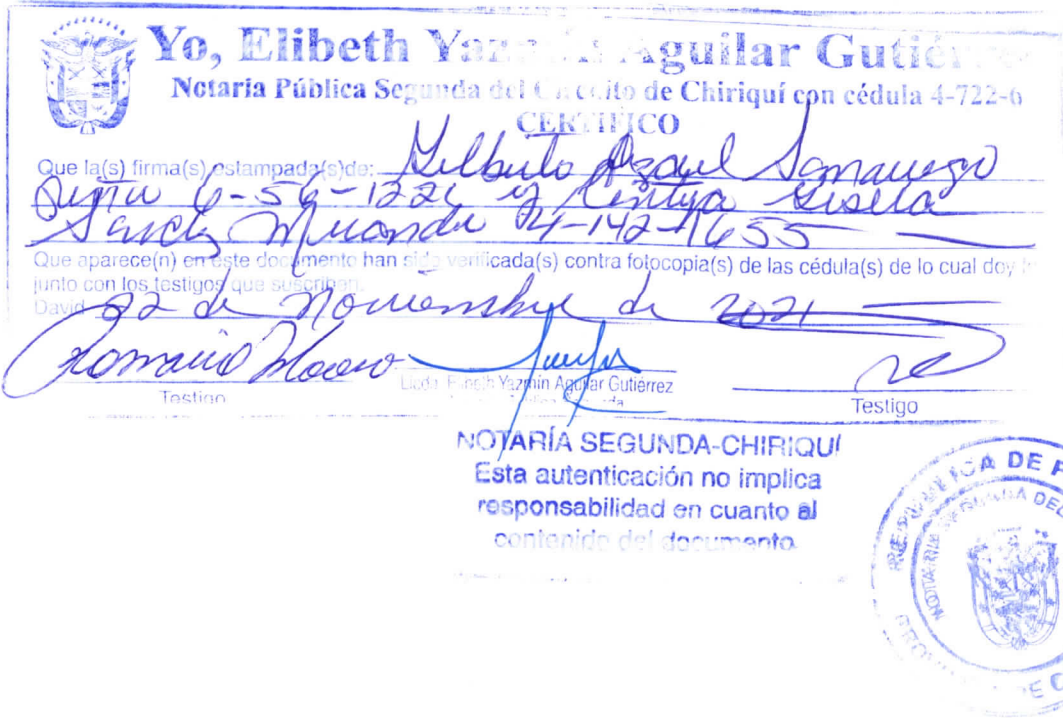 Yo, Elibeth Yazmín Aguilar Gutiérrez
Notaria Pública Segunda del Circuito de Chiriquí con cédula 4-722-6
CERTIFICO
Que la(s) firma(s) estampada(s)de: Gilberto Samaniego
6-56-1226 y Cintya Gisela
Miranda 4-142-1655
Que aparece(n) en este documento han sido verificada(s) contra fotocopia(s) de las cédula(s) de lo cual doy
junto con los testigos que suscriben.
David 22 de noviembre de 2021
Licda. Elibeth Yazmín Aguilar Gutiérrez
Testigo
Testigo
NOTARÍA SEGUNDA-CHIRIQUÍ
Esta autenticación no implica
responsabilidad en cuanto al
contenido del documento.
REPÚBLICA DE P